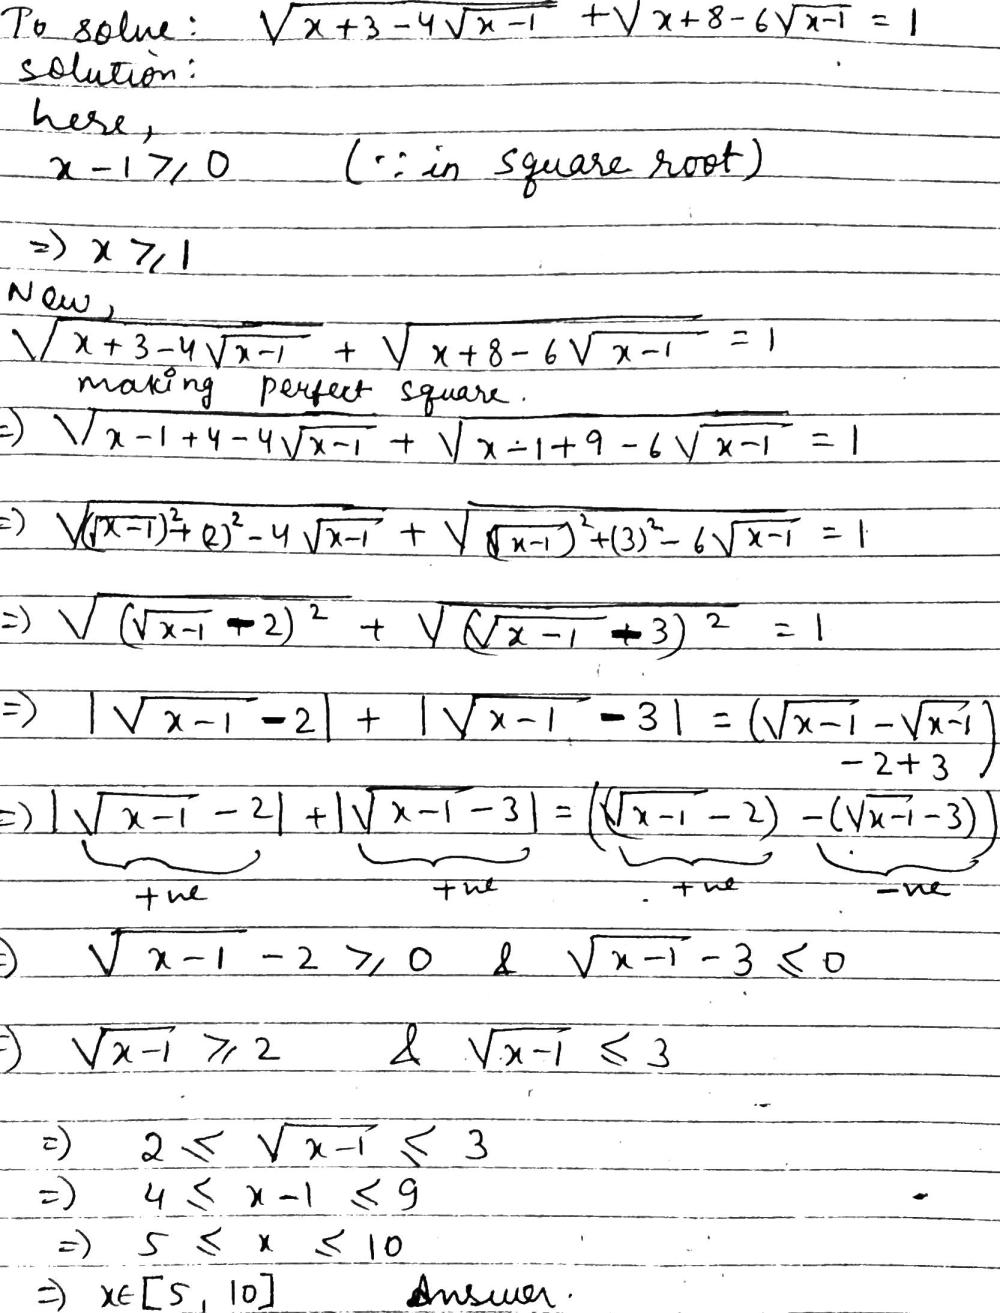 To solve: √(x+3-4√(x-1)) + √(x+8-6√(x-1)) = 1
solution:
here,
x-1 ⩾ 0 (∵ in square root)
=) x ⩾ 1
Now,
√(x+3-4√(x-1)) + √(x+8-6√(x-1)) = 1
making perfect square.
=) √(x-1+4-4√(x-1)) + √(x-1+9-6√(x-1)) = 1
=) √((√(x-1))²+(2)²-4√(x-1)) + √((√(x-1))²+(3)²-6√(x-1)) = 1
=) √((√(x-1) - 2)²) + √((√(x-1) - 3)²) = 1
=) |√(x-1) - 2| + |√(x-1) - 3| = (√(x-1) - √(x-1)
-2+3)
=) |√(x-1) - 2| + |√(x-1) - 3| = ((√(x-1) - 2) - (√(x-1) - 3))
+ve +ve +ve -ve
=) √(x-1) - 2 ⩾ 0 & √(x-1) - 3 ⩽ 0
=) √(x-1) ⩾ 2 & √(x-1) ⩽ 3
=) 2 ⩽ √(x-1) ⩽ 3
=) 4 ⩽ x-1 ⩽ 9
=) 5 ⩽ x ⩽ 10
=) x∈[5, 10] Answer.